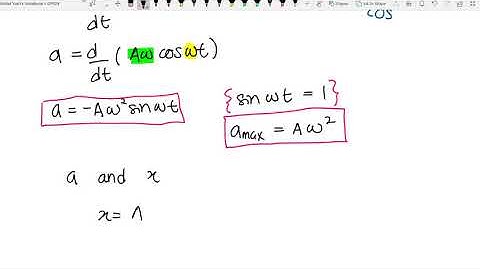 cos
dt
a = d/dt ( Aω cos ωt )
a = -Aω² sin ωt
{ sin ωt = 1 }
a max = Aω²
a and x
x = A